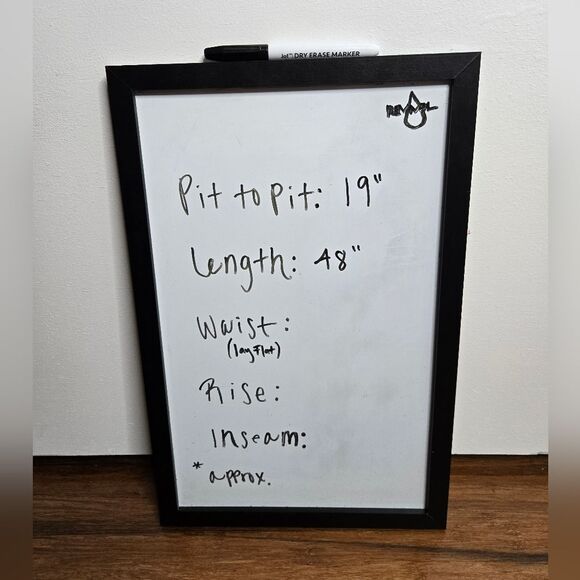 Jot™ DRY ERASE MARKER
REVIVAL
Pit to pit: 19"
Length: 48"
Waist:
(lay flat)
Rise:
Inseam:
* approx.